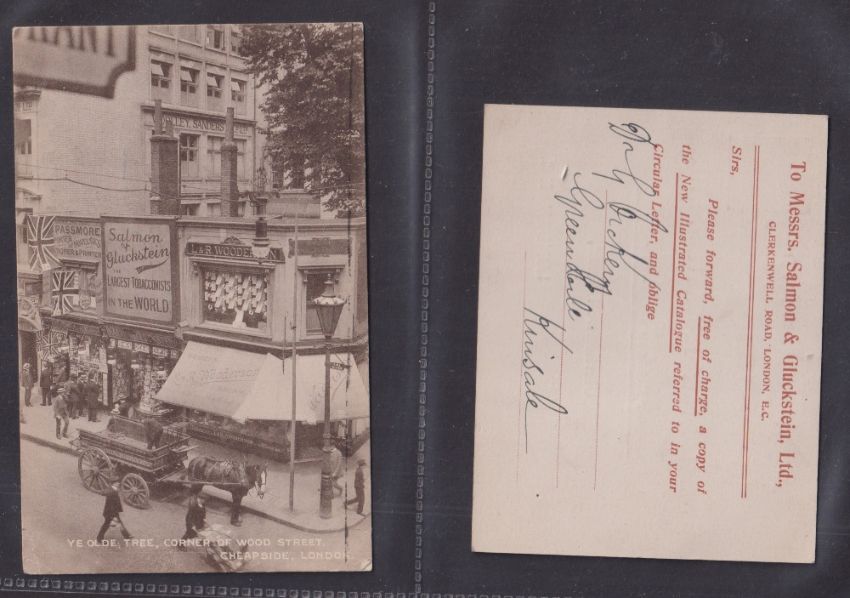 SANDERS
PASSMORE
Salmon
&
Gluckstein
THE
LARGEST TOBACCONISTS
IN THE WORLD
YE OLDE TREE, CORNER OF WOOD STREET,
CHEAPSIDE, LONDON.
To Messrs. Salmon & Gluckstein, Ltd.,
CLERKENWELL ROAD, LONDON, E.C.
Sirs,
Please forward, free of charge, a copy of
the New Illustrated Catalogue referred to in your
Circular Letter, and oblige
Kinsale